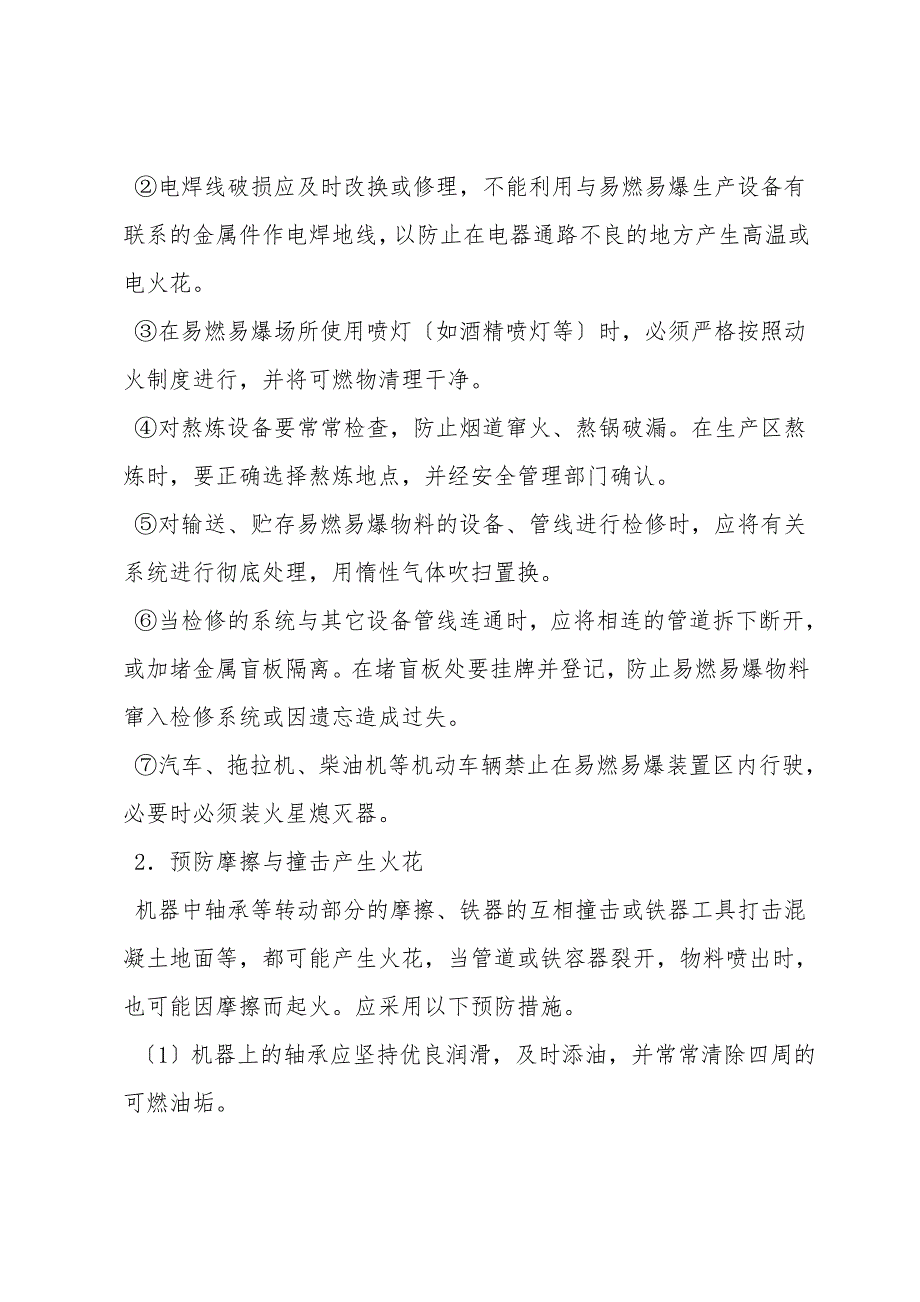 ②电焊线破损应及时改换或修理，不能利用与易燃易爆生产设备有
联系的金属件作电焊地线，以防止在电器通路不良的地方产生高温或
电火花。
③在易燃易爆场所使用喷灯〔如酒精喷灯等〕时，必须严格按照动
火制度进行，并将可燃物清理干净。
④对熬炼设备要常常检查，防止烟道窜火、熬锅破漏。在生产区熬
炼时，要正确选择熬炼地点，并经安全管理部门确认。
⑤对输送、贮存易燃易爆物料的设备、管线进行检修时，应将有关
系统进行彻底处理，用惰性气体吹扫置换。
⑥当检修的系统与其它设备管线连通时，应将相连的管道拆下断开，
或加堵金属盲板隔离。在堵盲板处要挂牌并登记，防止易燃易爆物料
窜入检修系统或因遗忘造成过失。
⑦汽车、拖拉机、柴油机等机动车辆禁止在易燃易爆装置区内行驶，
必要时必须装火星熄灭器。
2．预防摩擦与撞击产生火花
机器中轴承等转动部分的摩擦、铁器的互相撞击或铁器工具打击混
凝土地面等，都可能产生火花，当管道或铁容器裂开，物料喷出时，
也可能因摩擦而起火。应采用以下预防措施。
〔1〕机器上的轴承应坚持优良润滑，及时添油，并常常清除四周的
可燃油垢。